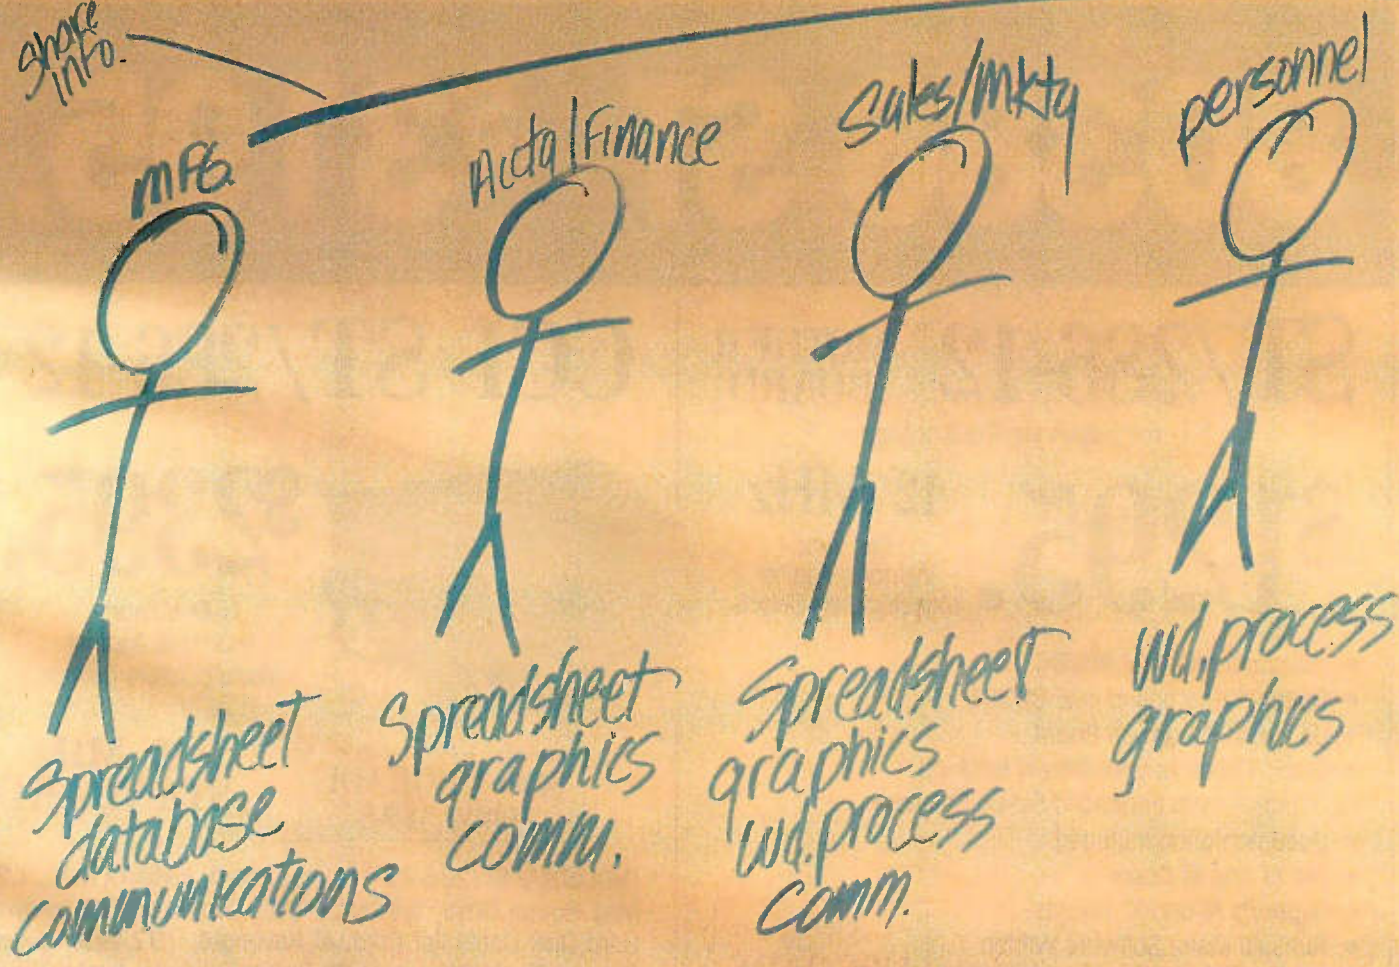 Share
Info.
mFG.
Acctg/Finance
Sales/mktg
personnel
Spreadsheet
database
communications
Spreadsheet
graphics
comm.
Spreadsheet
graphics
wd.process
comm.
wd.process
graphics